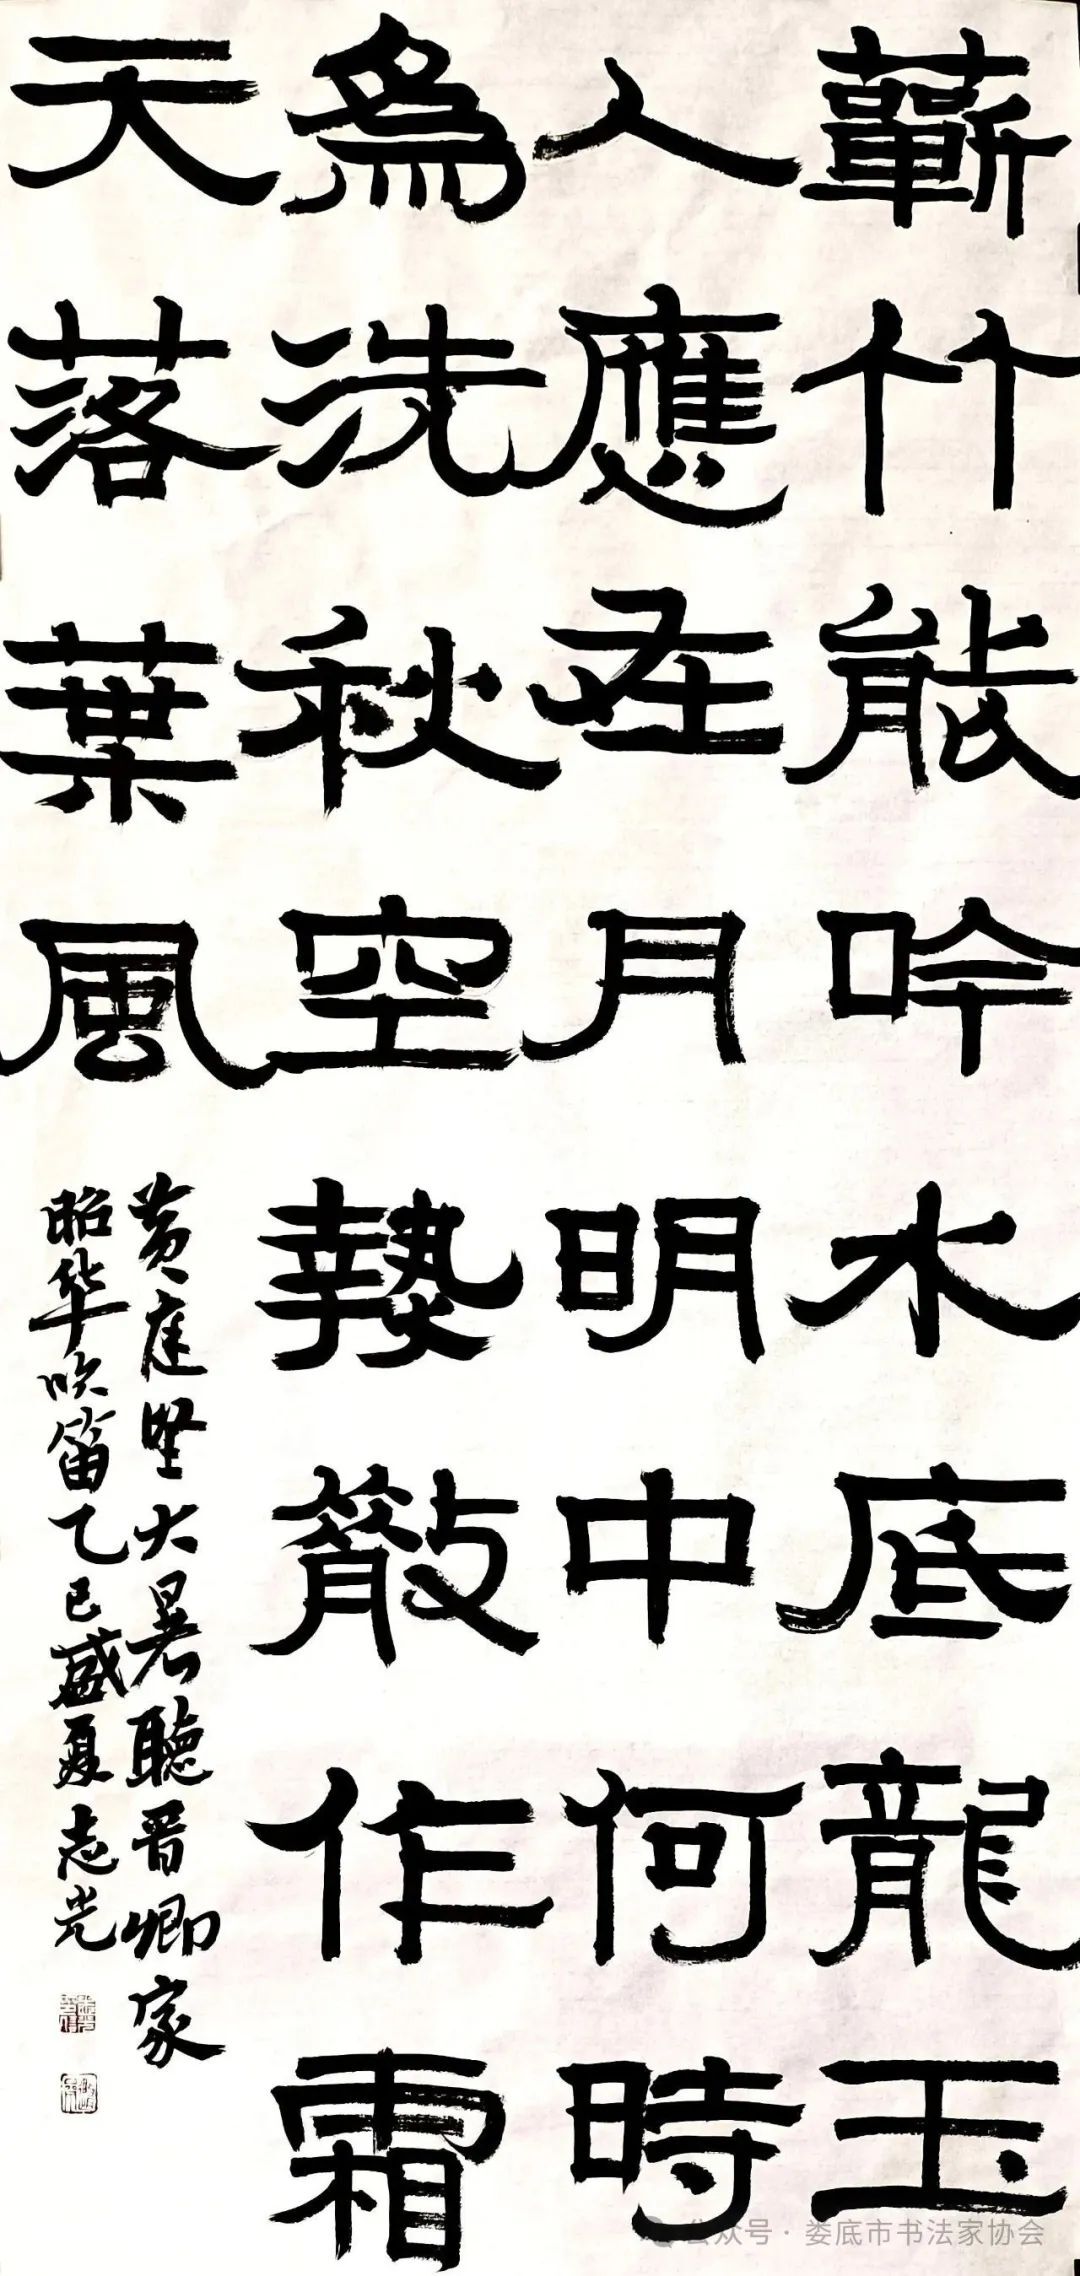 蘄竹能吟水底龍玉
人應在月明中何時
爲洗秋空熱散作霜
天落葉風
黄庭堅大暑聽晋卿家
昭华吹笛乙巳盛夏志光
公众号 · 娄底市书法家协会